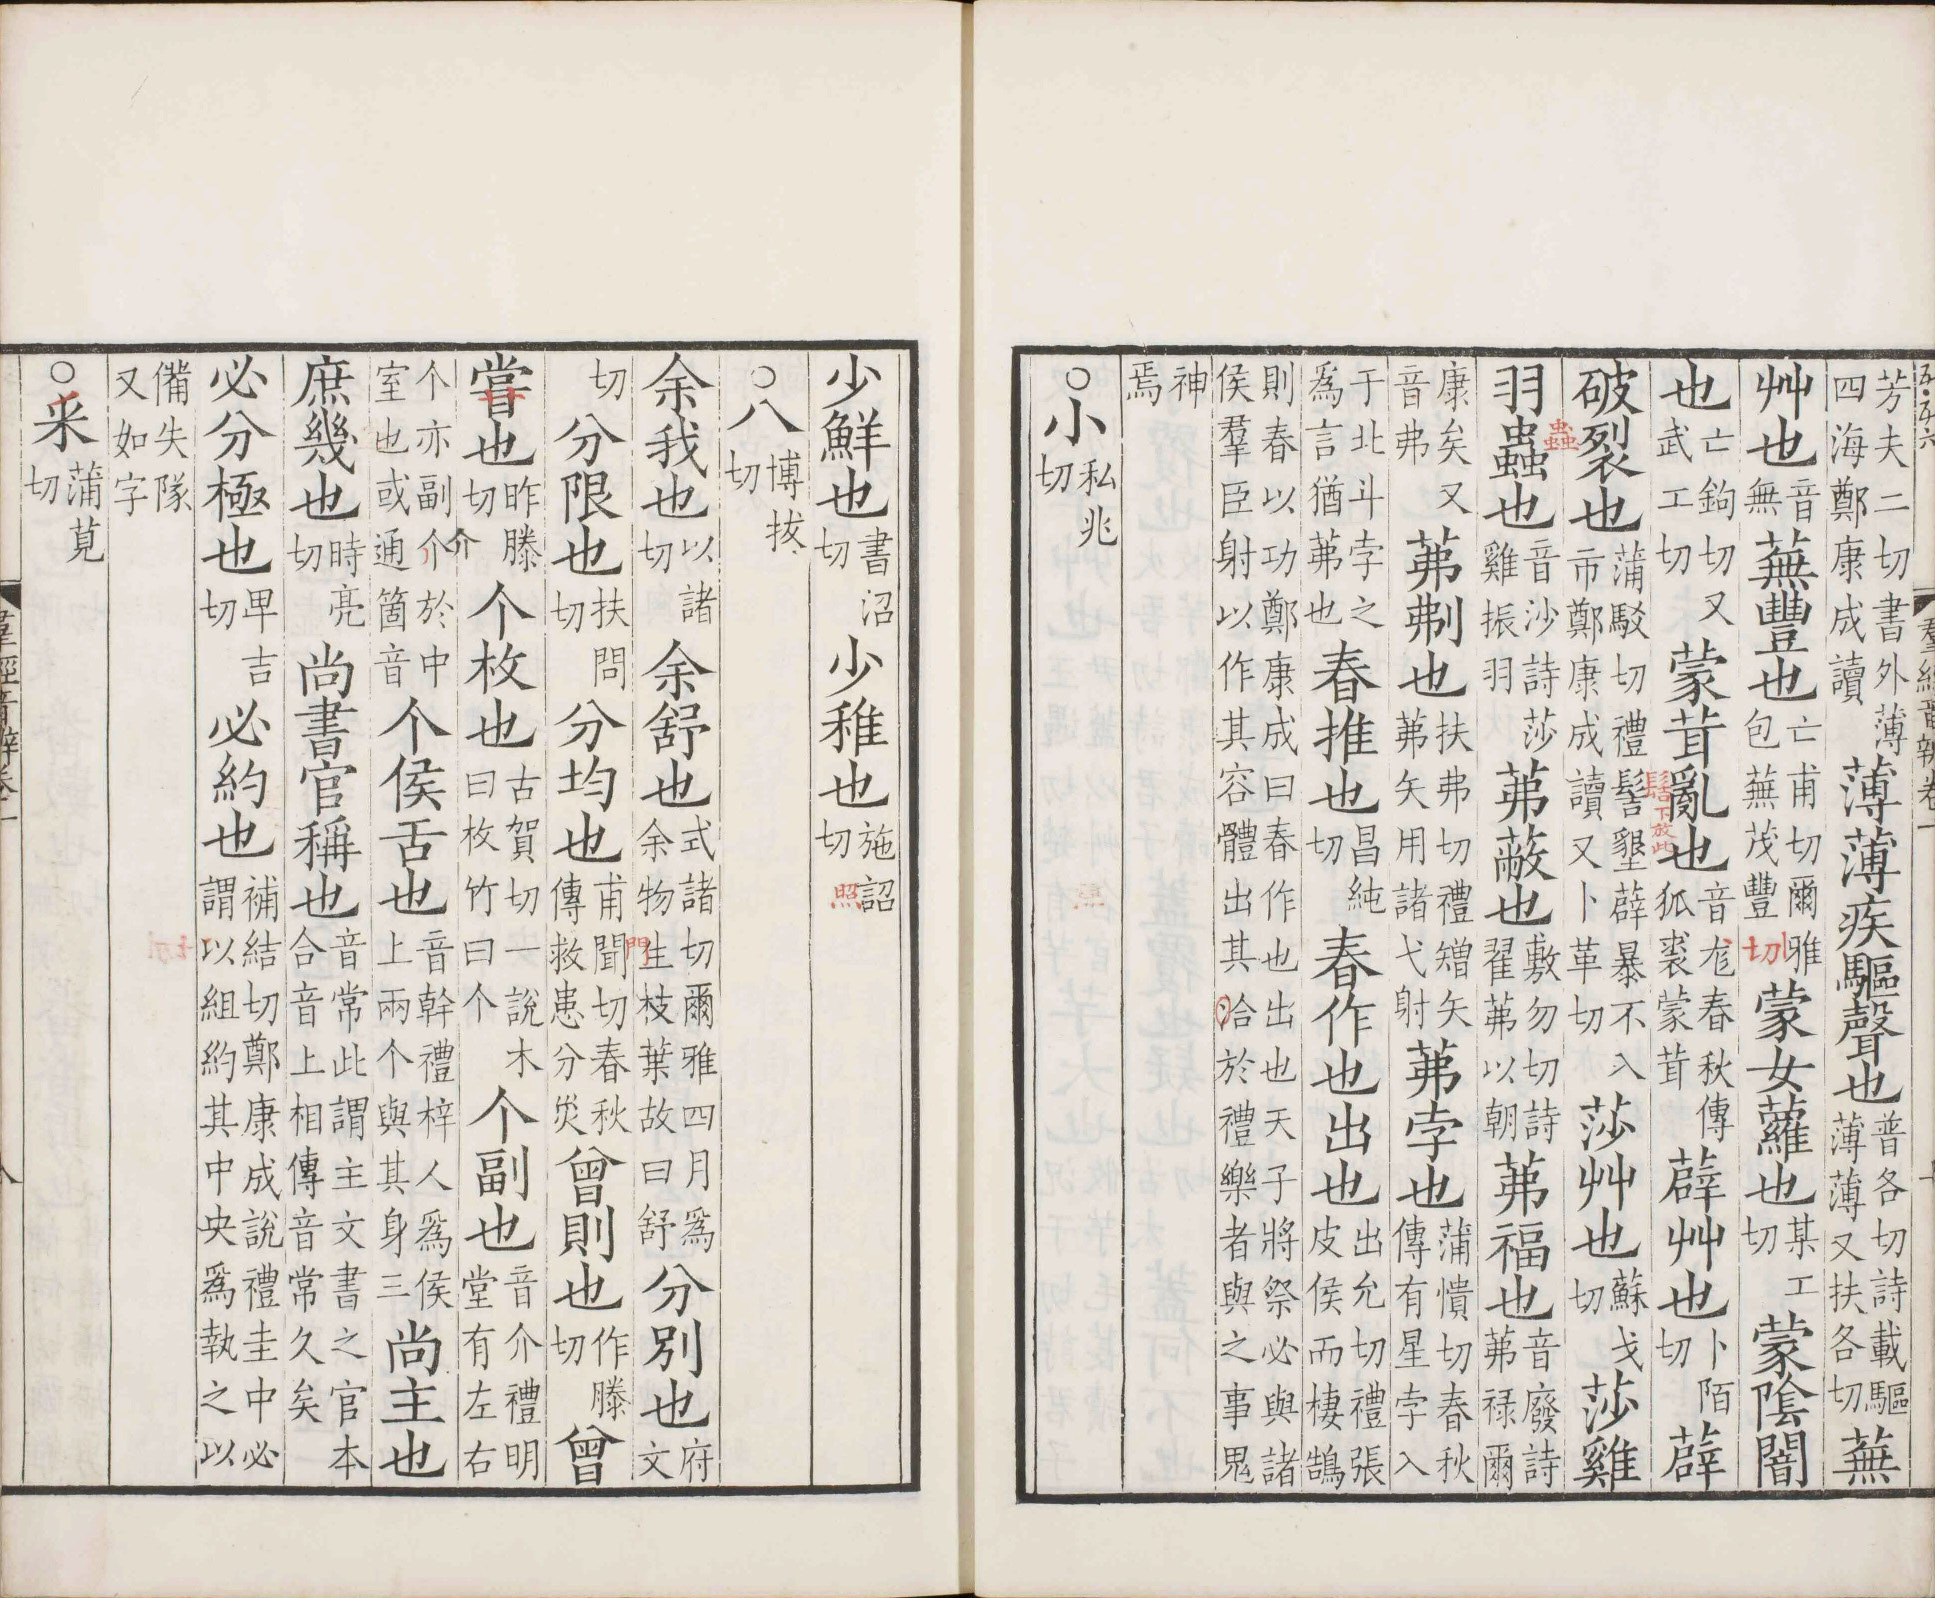 芳夫二切書外薄四海鄭康成讀薄薄疾驅聲也普各切詩載驅薄薄又扶各切蕪
艸也音無蕪豐也亡甫切爾雅包蕪茂豐切蒙女蘿也某工切蒙陰闇
也亡鉤切又武工切蒙茸亂也音尨春秋傳狐裘蒙茸薜艸也卜陌切薜
髺下放此
破裂也蒲駁切禮髺墾薜暴不入市鄭康成讀又卜革切莎艸也蘇戈切莎雞
蟲
羽蟲也音沙詩莎雞振羽茀蔽也敷勿切詩翟茀以朝茀福也音廢詩茀祿爾
康矣又音弗茀刜也扶弗切禮矰矢茀矢用諸弋射茀孛也蒲憒切春秋傳有星孛入
于北斗孛之爲言猶茀也春推也昌純切春作也出也出允切禮張皮侯而棲鵠
則春以功鄭康成曰春作也出也天子將祭必與諸侯羣臣射以作其容體出其合於禮樂者與之事鬼
神焉
○小私兆切
羣經音辨卷一
少鮮也書沼切少稚也施詔切
照
○八博拔切
余我也以諸切余舒也式諸切爾雅四月爲余物生枝葉故曰舒分別也府文
門
切分限也扶問切分均也甫聞切春秋傳救患分災曾則也作滕切曾
嘗也昨滕切个枚也古賀切一說木曰枚竹曰个个副也音介禮明堂有左右
介
个亦副个於中室也或通箇音个侯舌也音幹禮梓人爲侯上兩个與其身三尚主也
庶幾也時亮切尚書官稱也音常此謂主文書之官本合音上相傳音常久矣
必分極也卑吉切必約也補結切鄭康成說禮圭中必謂以組約其中央爲執之以
備失隊又如字
○釆蒲莧切
羣經音辨卷一